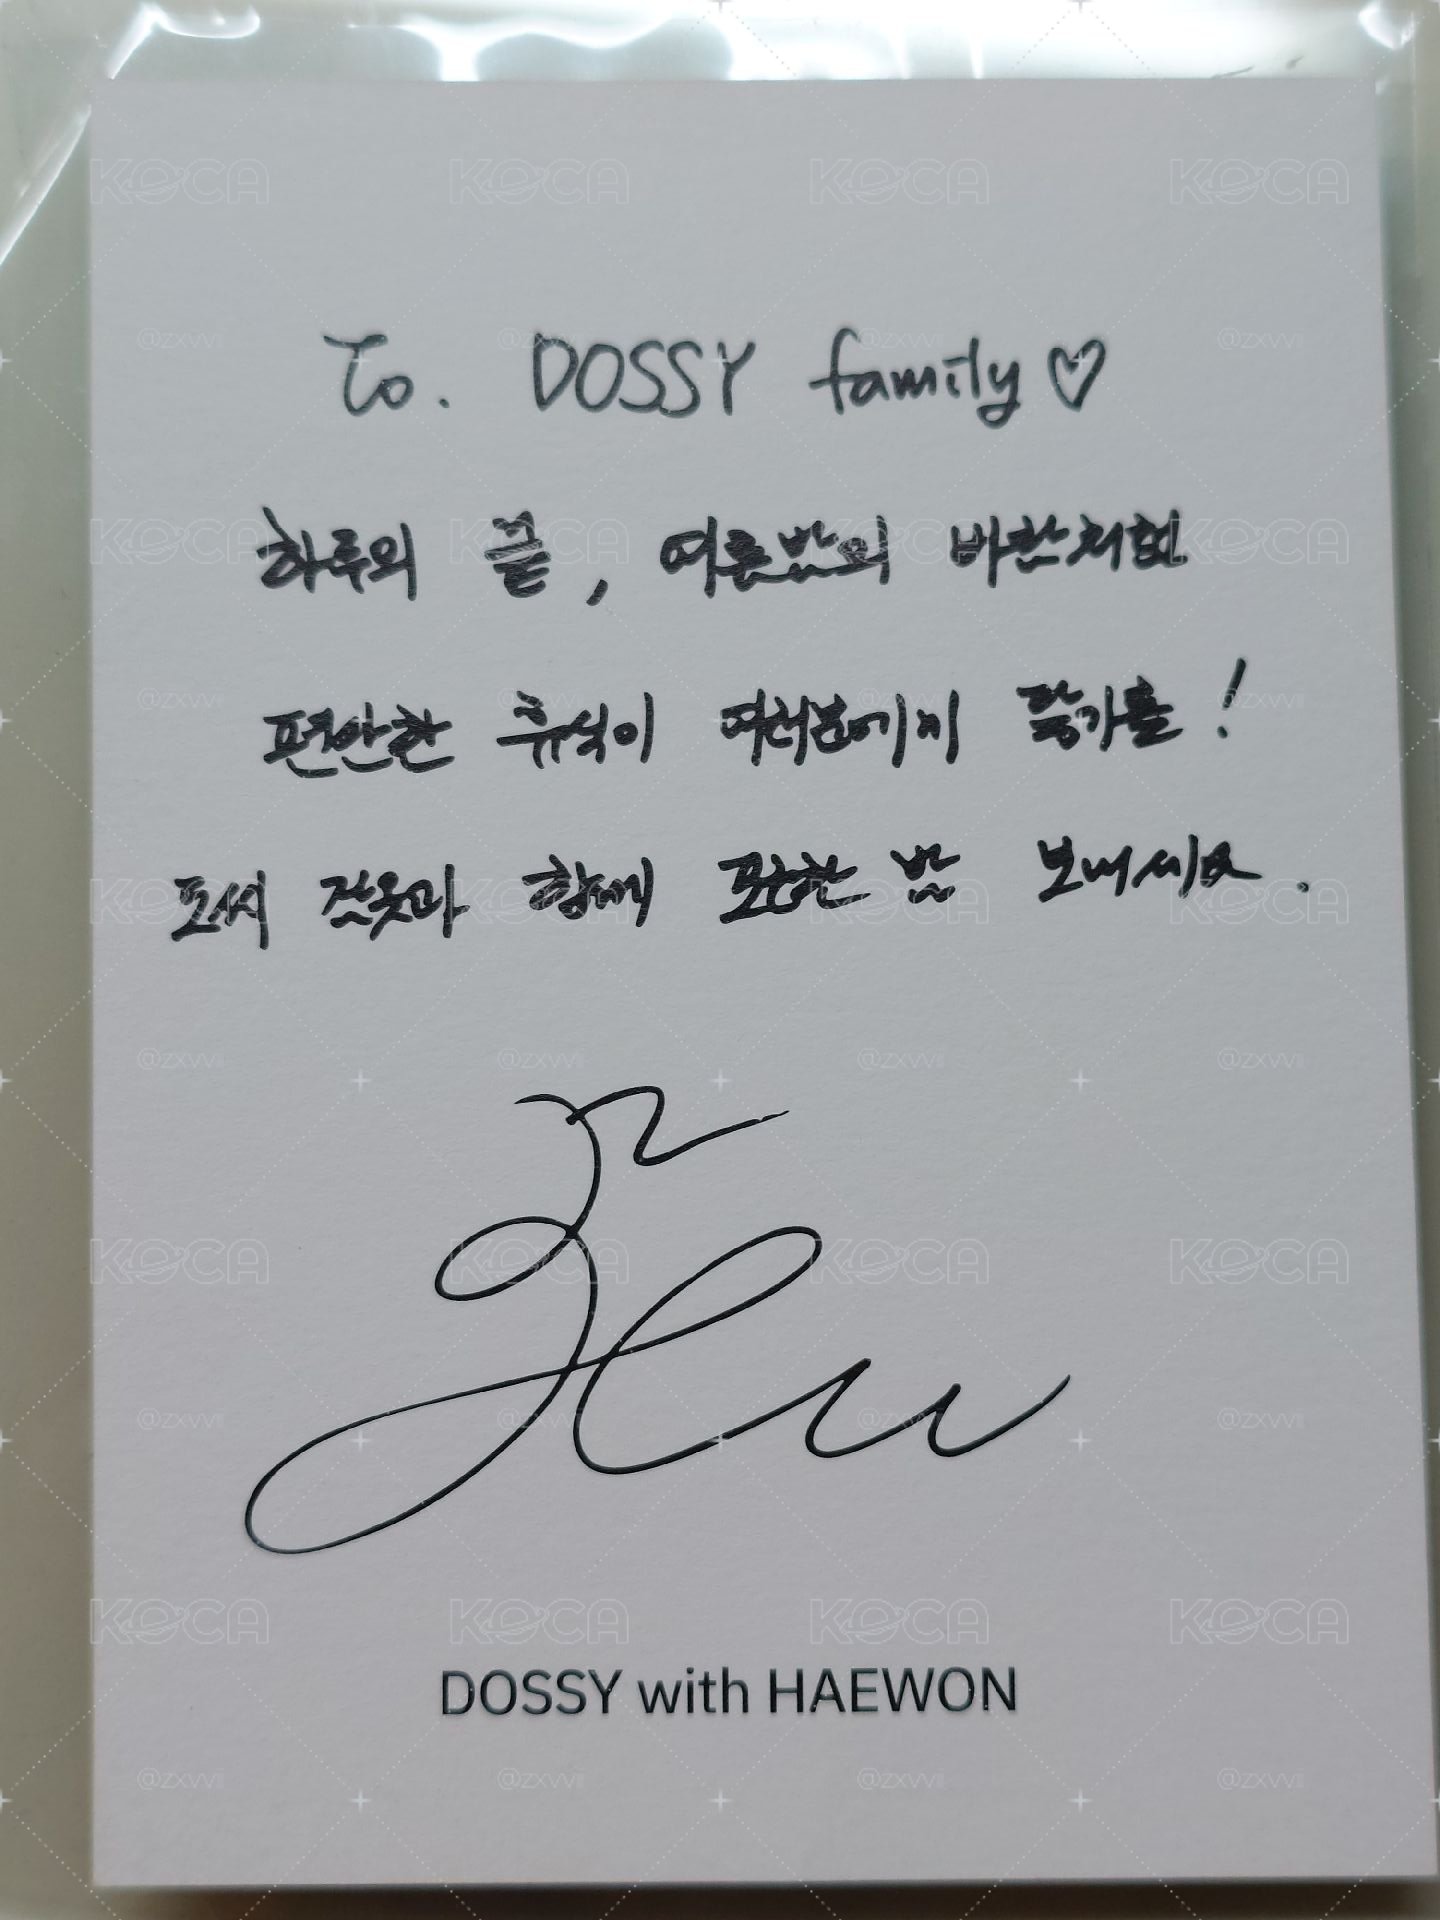 To. DOSSY family♡
하루의 끝, 여름밤의 바람처럼
편안한 휴식이 여러분에게 닿기를!
도씨 잠옷과 함께 포근한 밤 보내세요.
DOSSY with HAEWON
KOCA
@zxvvii